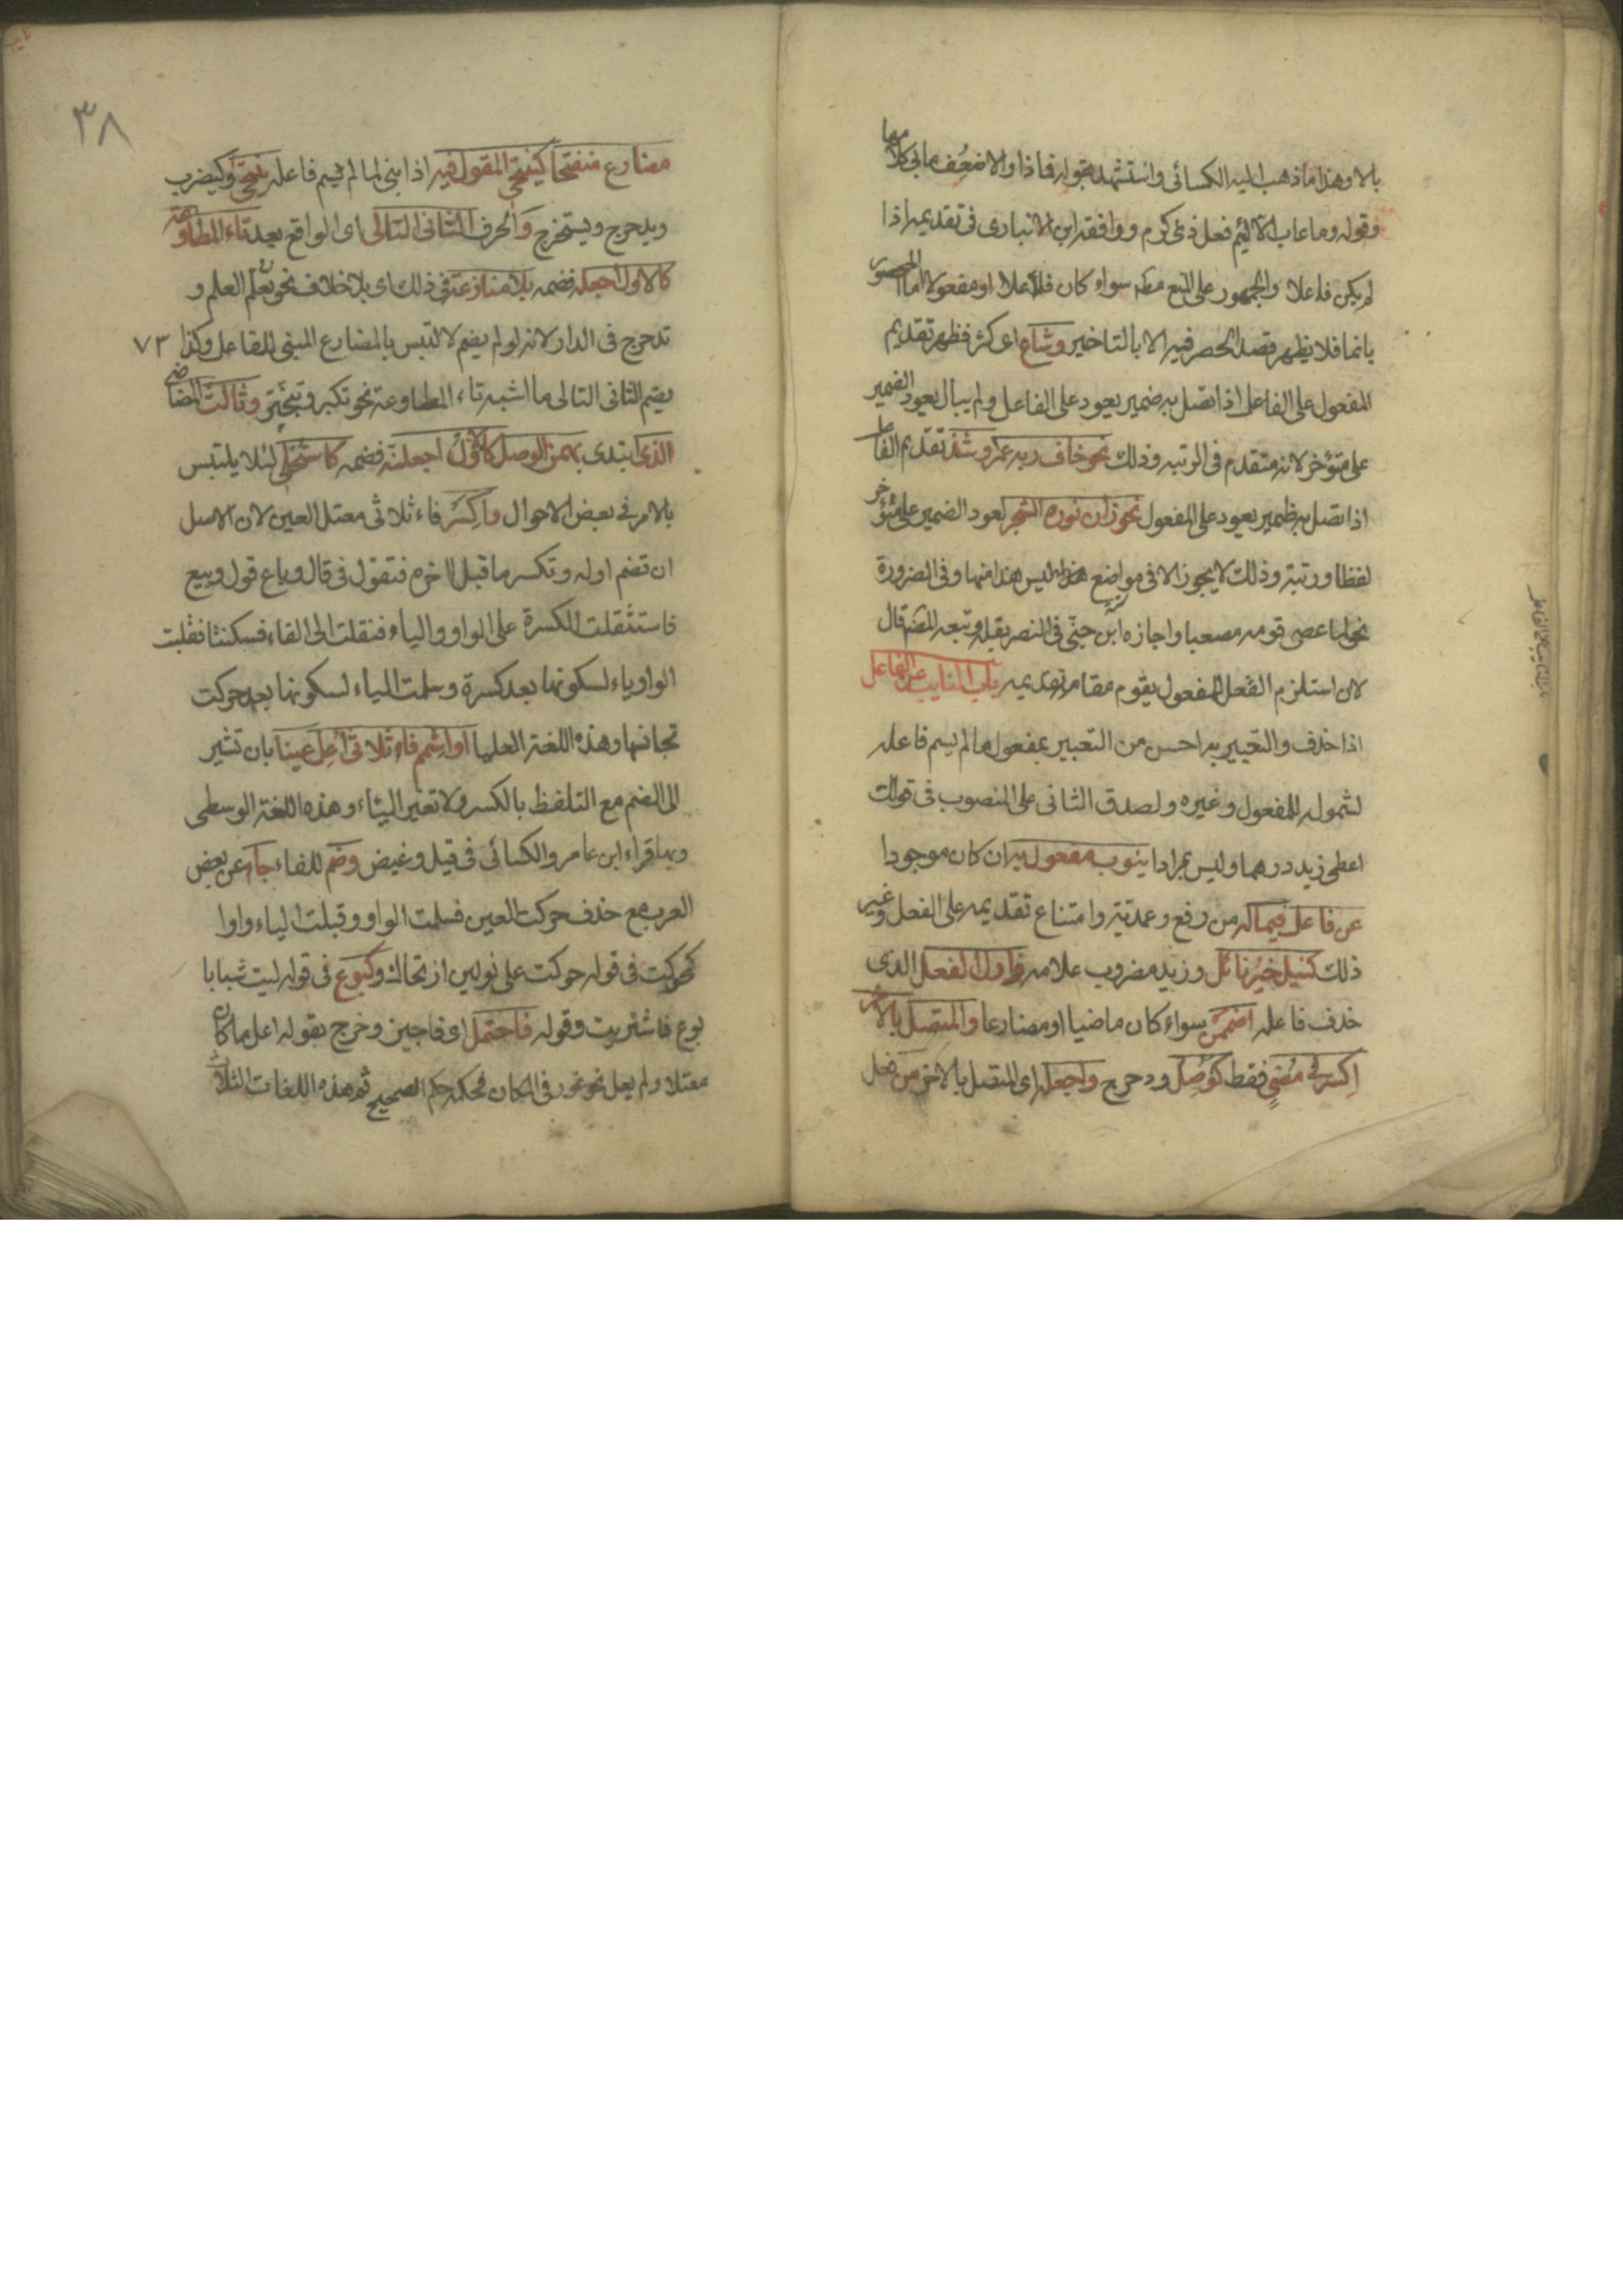 بالا وهذا ما ذهب اليه الكسائى واستشهد بقوله فما زاد الا ضعف ما بى كلامها
وقوله وما عاب الا لئيم فعل ذى كرم ووافقه ابن الانبارى فى تقديمه اذا
لم يكن فاعلا والجمهور على المنع مطه سواء كان فاعلا او مفعولا اما المحصور
بانما فلا يظهر قصد الحصر فيه الا بالتاخير وشاع اى كثر فظهر تقديم
المفعول على الفاعل اذا اتصل به ضمير يعود على الفاعل ولم يبال بعود الضمير
على متؤخر لانه متقدم فى الرتبه وذلك نحو خاف ربه عمر وشذ تقديم الفاعل
اذا تصل به ظمير يعود على المفعول نحو زان نوره الشجر لعود الضمير على متؤخر
لفظا ورتبة وذلك لا يجوز الا فى مواضع ليس هذا منها وفى الضرورة
نحو لما عصى قومه مصعبا واجازه ابن جنّى فى النصر بقلة وتبعه المصّ قال
لان استلزم الفعل للمفعول يقوم مقام تقديمه باب النايب عن الفاعل
اذا حذف والتعبير به احسن من التعبير بمفعول ما لم يسم فاعله
لشموله للمفعول وغيره ولصدق الثانى على المنصوب فى قولك
اعطى زيد درهما وليس بمرادا ينوب مفعول به ان كان موجودا
عن فاعل فيما له من رفع وعمدتية وامتناع تقديمه على الفعل وغير
ذلك كنيل خير نائل وزيد مضروب غلامه فاول الفعل الذى
حذف فاعله اضممن سواء كان ماضيا او مضارعا والمتصل بالاخر
اكسر فى مضى فقط كوصل ودحرج واجعله اى المتصل بالاخر من فعل
٣٨
مضارع منفتحا كينتحى المقول فيه اذا بنى لما لم يسم فاعله ينتحى وكيضرب
ويدحرج ويستخرج والحرف الثانى التالى اى الواقع بعد تاء المطاوعة
كالاول اجعله فضمه بلا منازعة فى ذلك اى بلا خلاف نحو تعلم العلم و
تدحرج فى الدار لانه لو لم يضم لالتبس بالمضارع المبنى للفاعل وكذا ٧٣
يضم الثانى التالى ما اشبه تاء المطاوعة نحو تكبر وتبختر وثالث الماضى
الذى ابتدى بهمز الوصل كالاول اجعلنه فضمه كاستحلى لئلا يلتبس
بالامر فى بعض الاحوال واكسر فاء ثلاثى معتل العين لان الاصل
ان تضم اوله وتكسر ما قبل اخره فتقول فى قال وباع قول وبيع
فاستثقلت الكسرة على الواو والياء فنقلت الى الفاء فسكنتا فقلبت
الواو ياء لسكونها بعد كسرة وسلمت الياء لسكونها بعد حركت
تجانسها وهذه اللغة العليا او اشمم فاء ثلاثى اعل عينا بان تشير
الى الضم مع التلفظ بالكسر ولا تغير الياء وهذه اللغة الوسطى
وبها قراء ابن عامر والكسائى فى قيل وغيض وضم للفاء جاء عن بعض
العرب مع حذف حركت العين فسلمت الواو وقبلت الياء واوا
كحوكت فى قوله حوكت على نولين اذ تحاك وكبوع فى قوله ليت شبابا
بوع فاشتريت وقوله فاحتمل اى فاجيز وخرج بقوله اعل ما كان
معتلا ولم يعل نحو عور فى المكان فحكمه حكم الصحيح ثم هذه اللغات الثلاث